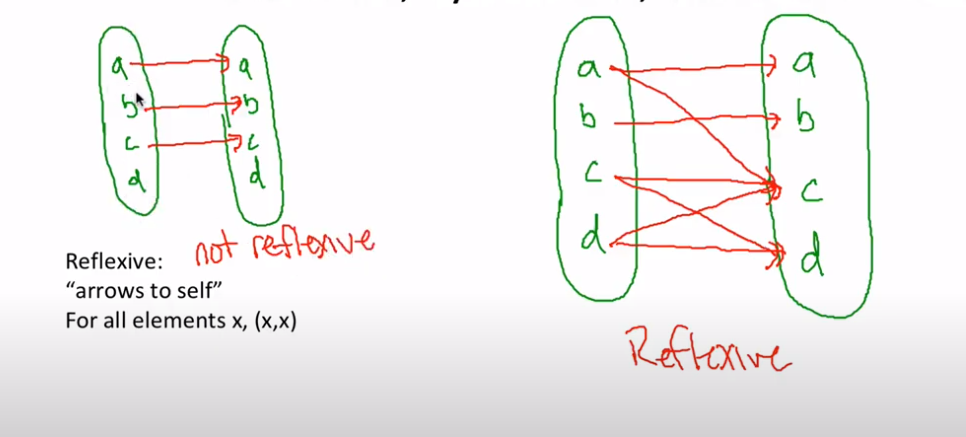 a a
b b
c c
d d
not reflexive
Reflexive:
“arrows to self”
For all elements x, (x,x)
a a
b b
c c
d d
Reflexive